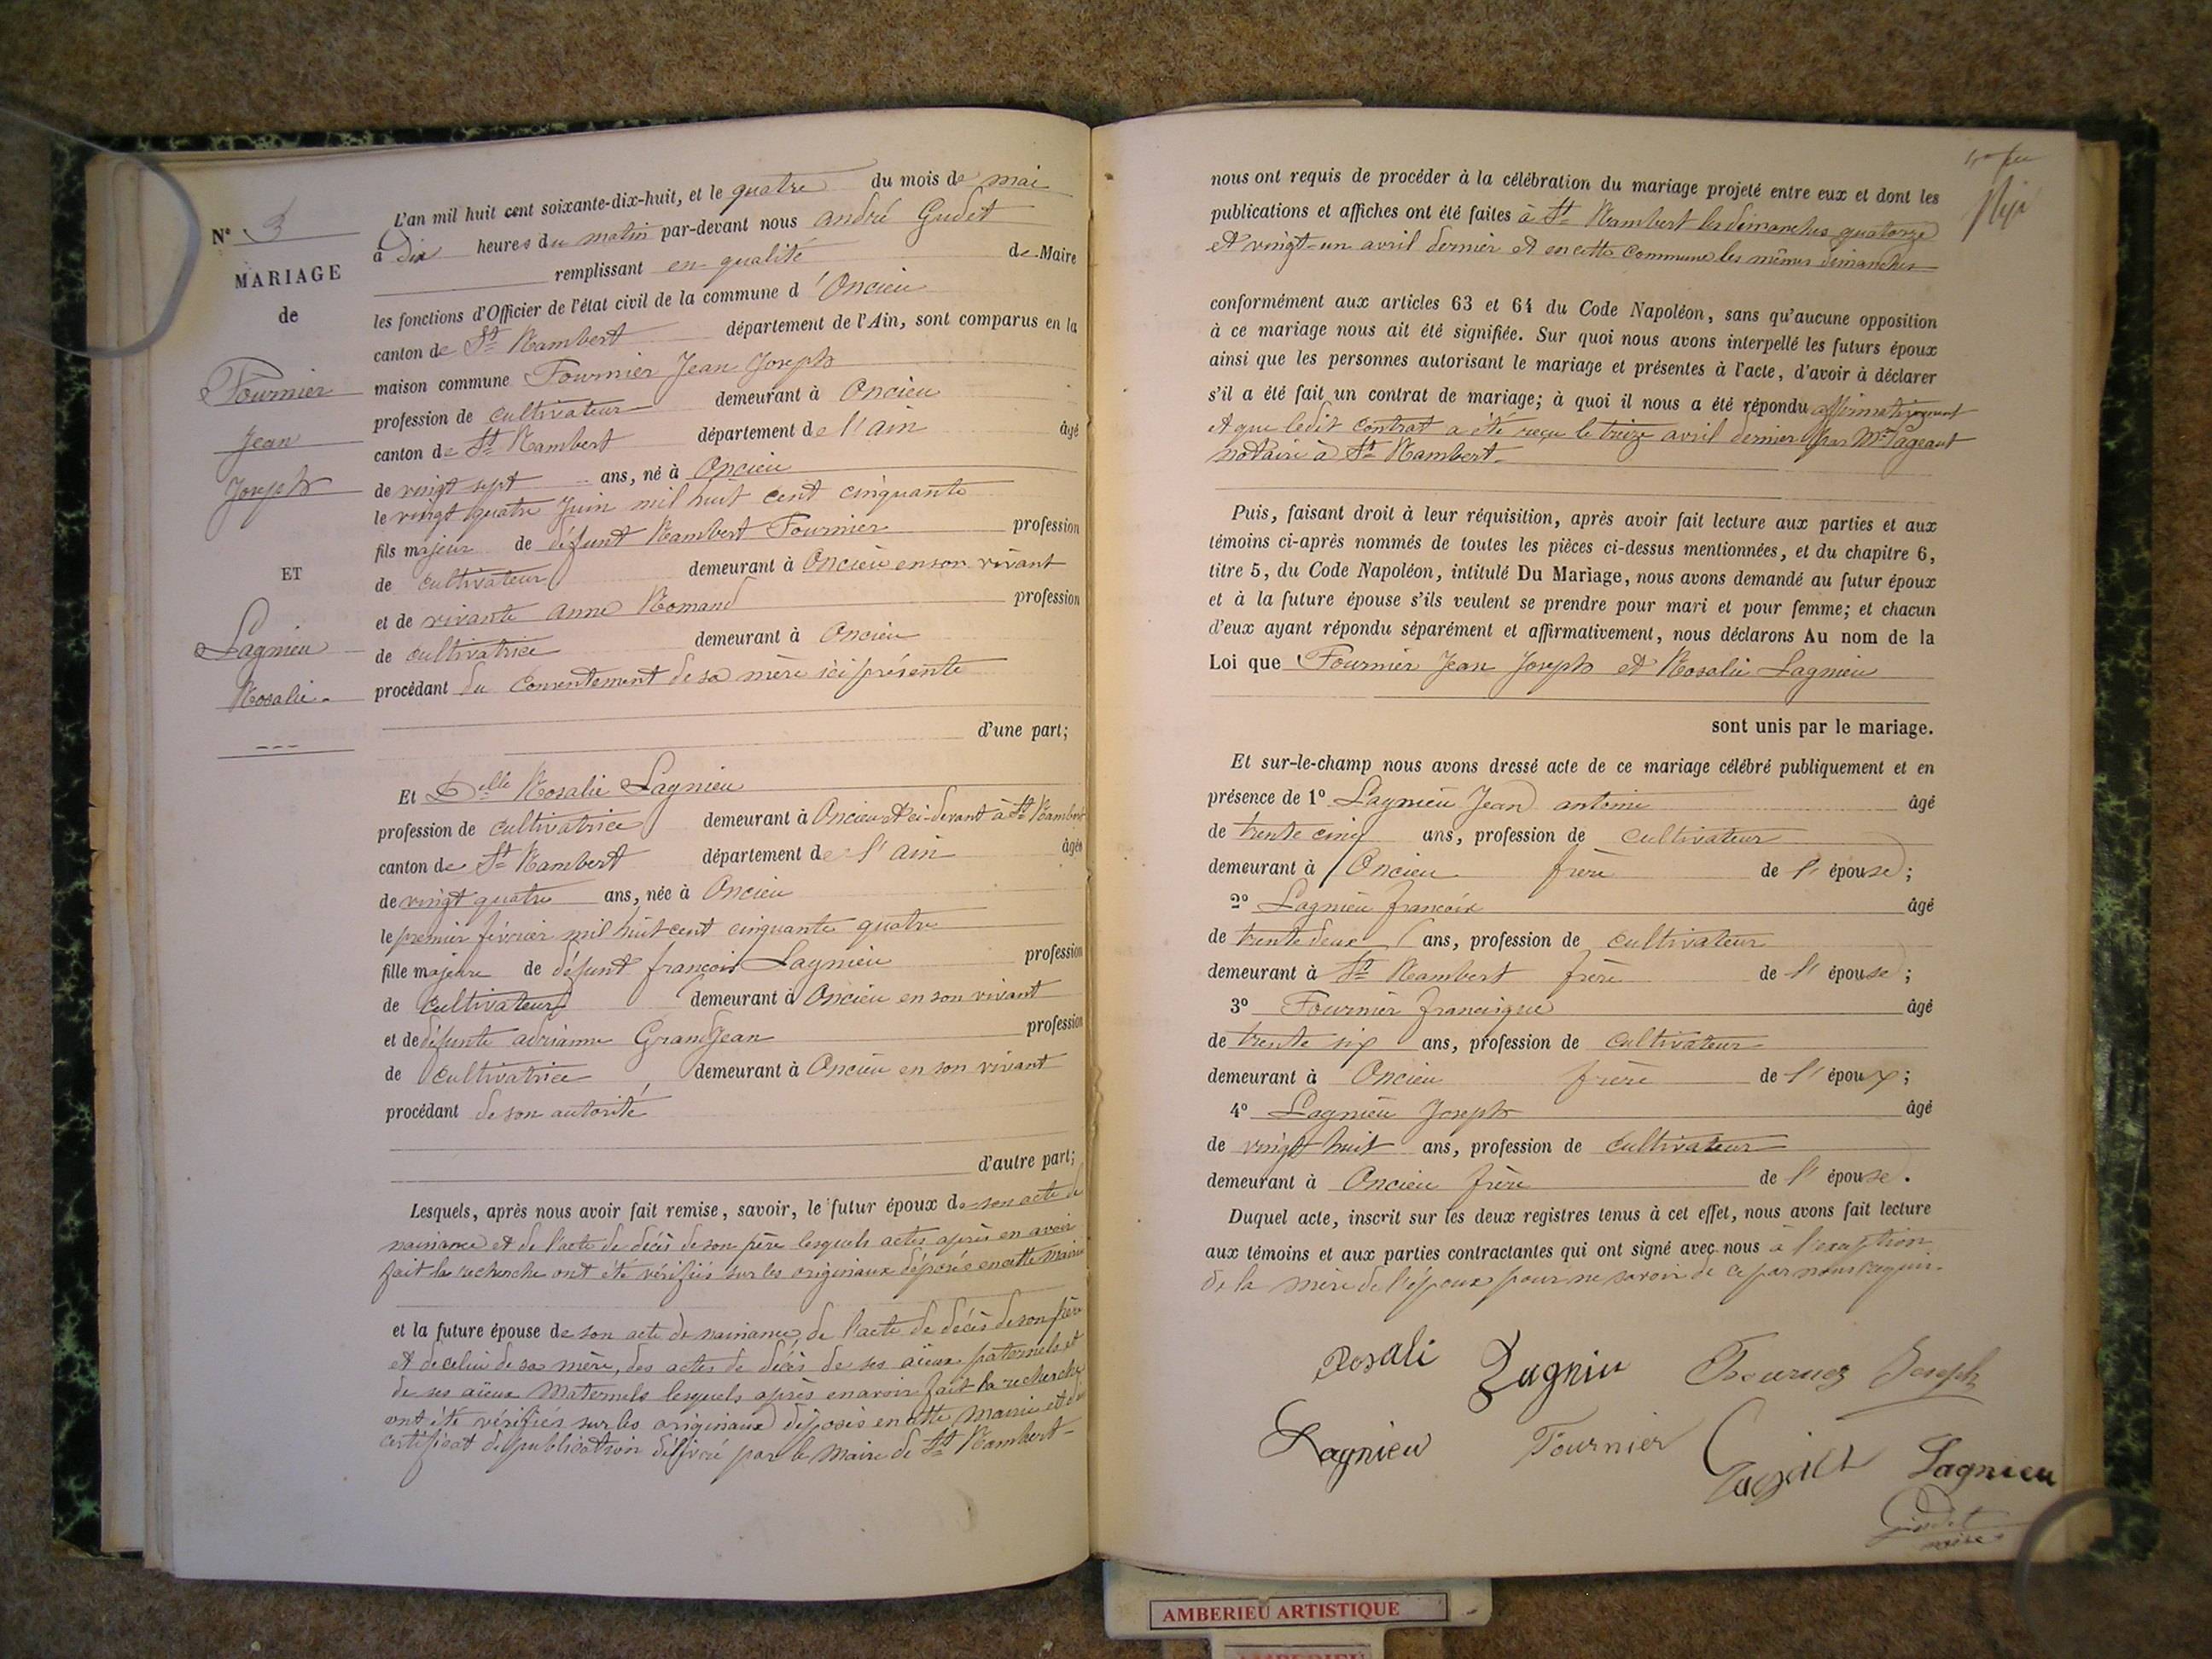 N° 3
MARIAGE
de
Fournier
Jean
Joseph
ET
Lagnieu
Rosalie.
L'an mil huit cent soixante-dix-huit, et le quatre du mois de mai
à Dix heures du matin par-devant nous andré Gudet
remplissant en qualité de Maire
les fonctions d'Officier de l'état civil de la commune d'Oncieu
canton de St Rambert département de l'Ain, sont comparus en la
maison commune Fournier Jean Joseph
profession de cultivateur demeurant à Oncieu
canton de St Rambert département de l'ain âgé
de vingt sept ans, né à Oncieu
le vingt quatre Juin mil huit cent cinquante
fils majeur de défunt Rambert Fournier profession
de cultivateur demeurant à Oncieu en son vivant
et de vivante anne Romand profession
de cultivatrice demeurant à Oncieu
procédant du consentement de sa mère ici présente
d'une part;
Et Delle Rosalie Lagnieu
profession de cultivatrice demeurant à Oncieu et ci-devant à St Rambert
canton de St Rambert département de l'ain âgée
de vingt quatre ans, née à Oncieu
le premier février mil huit cent cinquante quatre
fille majeure de défunt françois Lagnieu profession
de cultivateur demeurant à Oncieu en son vivant
et de défunte adrianne Grandjean profession
de cultivatrice demeurant à Oncieu en son vivant
procédant de son autorité
d'autre part;
Lesquels, après nous avoir fait remise, savoir, le futur époux de son acte de
naissance et de l'acte de décès de son père lesquels actes après en avoir
fait la recherche ont été vérifiés sur les originaux déposés en cette mairie
et la future épouse de son acte de naissance, de l'acte de décès de son père
et de celui de sa mère, des actes de décès de ses aïeux paternels et
de ses aïeux Maternels lesquels après en avoir fait la recherche
ont été vérifiés sur les originaux déposés en cette Mairie et du
certificat de publication délivré par le Maire de St Rambert
nous ont requis de procéder à la célébration du mariage projeté entre eux et dont les
publications et affiches ont été faites à St Rambert les dimanches quatorze
et vingt-un avril dernier et en cette Commune les mêmes dimanches
conformément aux articles 63 et 64 du Code Napoléon, sans qu'aucune opposition
à ce mariage nous ait été signifiée. Sur quoi nous avons interpellé les futurs époux
ainsi que les personnes autorisant le mariage et présentes à l'acte, d'avoir à déclarer
s'il a été fait un contrat de mariage; à quoi il nous a été répondu affirmativement
et que ledit contrat a été reçu le treize avril dernier par Me Pageaut
notaire à St Rambert
Puis, faisant droit à leur réquisition, après avoir fait lecture aux parties et aux
témoins ci-après nommés de toutes les pièces ci-dessus mentionnées, et du chapitre 6,
titre 5, du Code Napoléon, intitulé Du Mariage, nous avons demandé au futur époux
et à la future épouse s'ils veulent se prendre pour mari et pour femme; et chacun
d'eux ayant répondu séparément et affirmativement, nous déclarons Au nom de la
Loi que Fournier Jean Joseph et Rosalie Lagnieu
sont unis par le mariage.
Et sur-le-champ nous avons dressé acte de ce mariage célébré publiquement et en
présence de 1° Lagnieu Jean antoine âgé
de trente cinq ans, profession de cultivateur
demeurant à Oncieu frère de l'épouse;
2° Lagnieu françois âgé
de trente deux ans, profession de cultivateur
demeurant à St Rambert frère de l'épouse;
3° Fournier francisque âgé
de trente six ans, profession de cultivateur
demeurant à Oncieu frère de l'époux;
4° Lagnieu Joseph âgé
de vingt huit ans, profession de cultivateur
demeurant à Oncieu frère de l'épouse.
Duquel acte, inscrit sur les deux registres tenus à cet effet, nous avons fait lecture
aux témoins et aux parties contractantes qui ont signé avec nous à l'exception
de la mère de l'époux pour ne savoir de ce par nous requis.
Rosali Lagniu Fournier Joseph
Lagnieu Fournier Lagnieu
Gudet
maire
AMBERIEU ARTISTIQUE
AMBERIEU